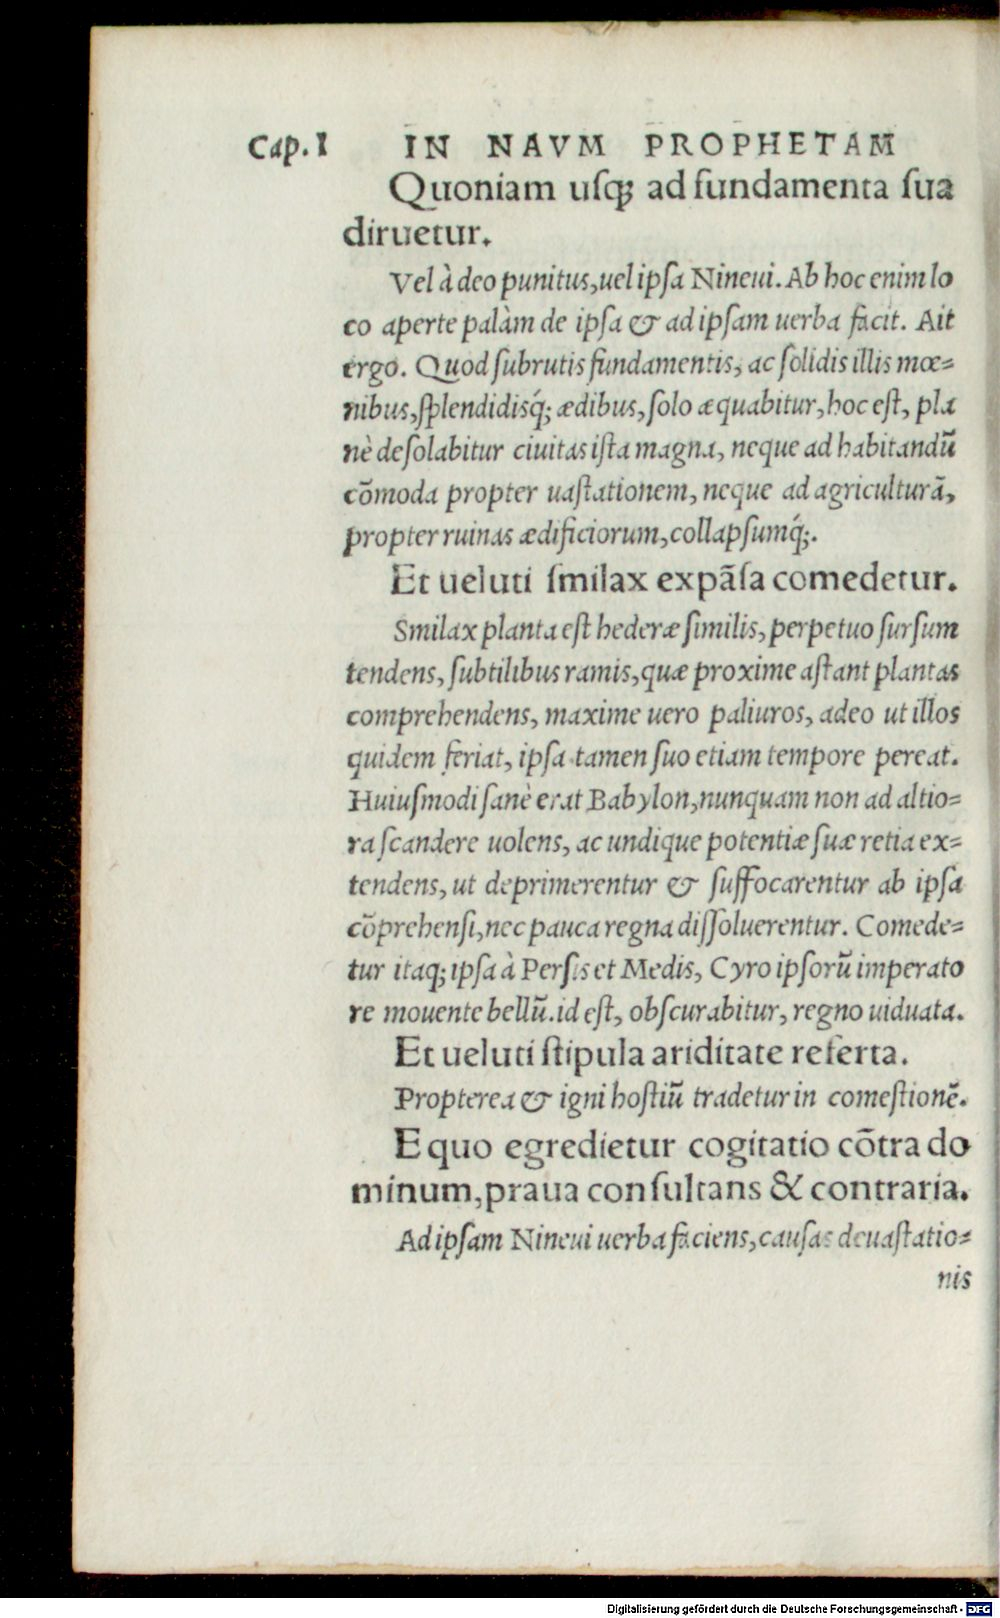 Cap. I IN NAVM PROPHETAM
Quoniam uſq; ad fundamenta ſua
diruetur.
Vel à deo punitus, uel ipſa Nineui. Ab hoc enim lo
co aperte palàm de ipſa & ad ipſam uerba facit. Ait
ergo. Quod ſubrutis fundamentis, ac ſolidis illis mœ=
nibus, ſplendidisq́; ædibus, ſolo æquabitur, hoc eſt, pla
nè deſolabitur ciuitas iſta magna, neque ad habitandū
cōmoda propter uaſtationem, neque ad agriculturā,
propter ruinas ædificiorum, collapſumq́;.
Et ueluti ſmilax expāſa comedetur.
Smilax planta eſt hederæ ſimilis, perpetuo ſurſum
tendens, ſubtilibus ramis, quæ proxime aſtant plantas
comprehendens, maxime uero paliuros, adeo ut illos
quidem feriat, ipſa tamen ſuo etiam tempore pereat.
Huiuſmodi ſanè erat Babylon, nunquam non ad altio=
ra ſcandere uolens, ac undique potentiæ ſuæ retia ex=
tendens, ut deprimerentur & ſuffocarentur ab ipſa
cōprehenſi, nec pauca regna diſſoluerentur. Comede=
tur itaq; ipſa à Perſis et Medis, Cyro ipſorū imperato
re mouente bellū. id eſt, obſcurabitur, regno uiduata.
Et ueluti ſtipula ariditate referta.
Propterea & igni hoſtiū tradetur in comeſtionē.
E quo egredietur cogitatio cōtra do
minum, praua conſultans & contraria.
Ad ipſam Nineui uerba faciens, cauſas deuaſtatio=
nis
Digitalisierung gefördert durch die Deutsche Forschungsgemeinschaft - DFG